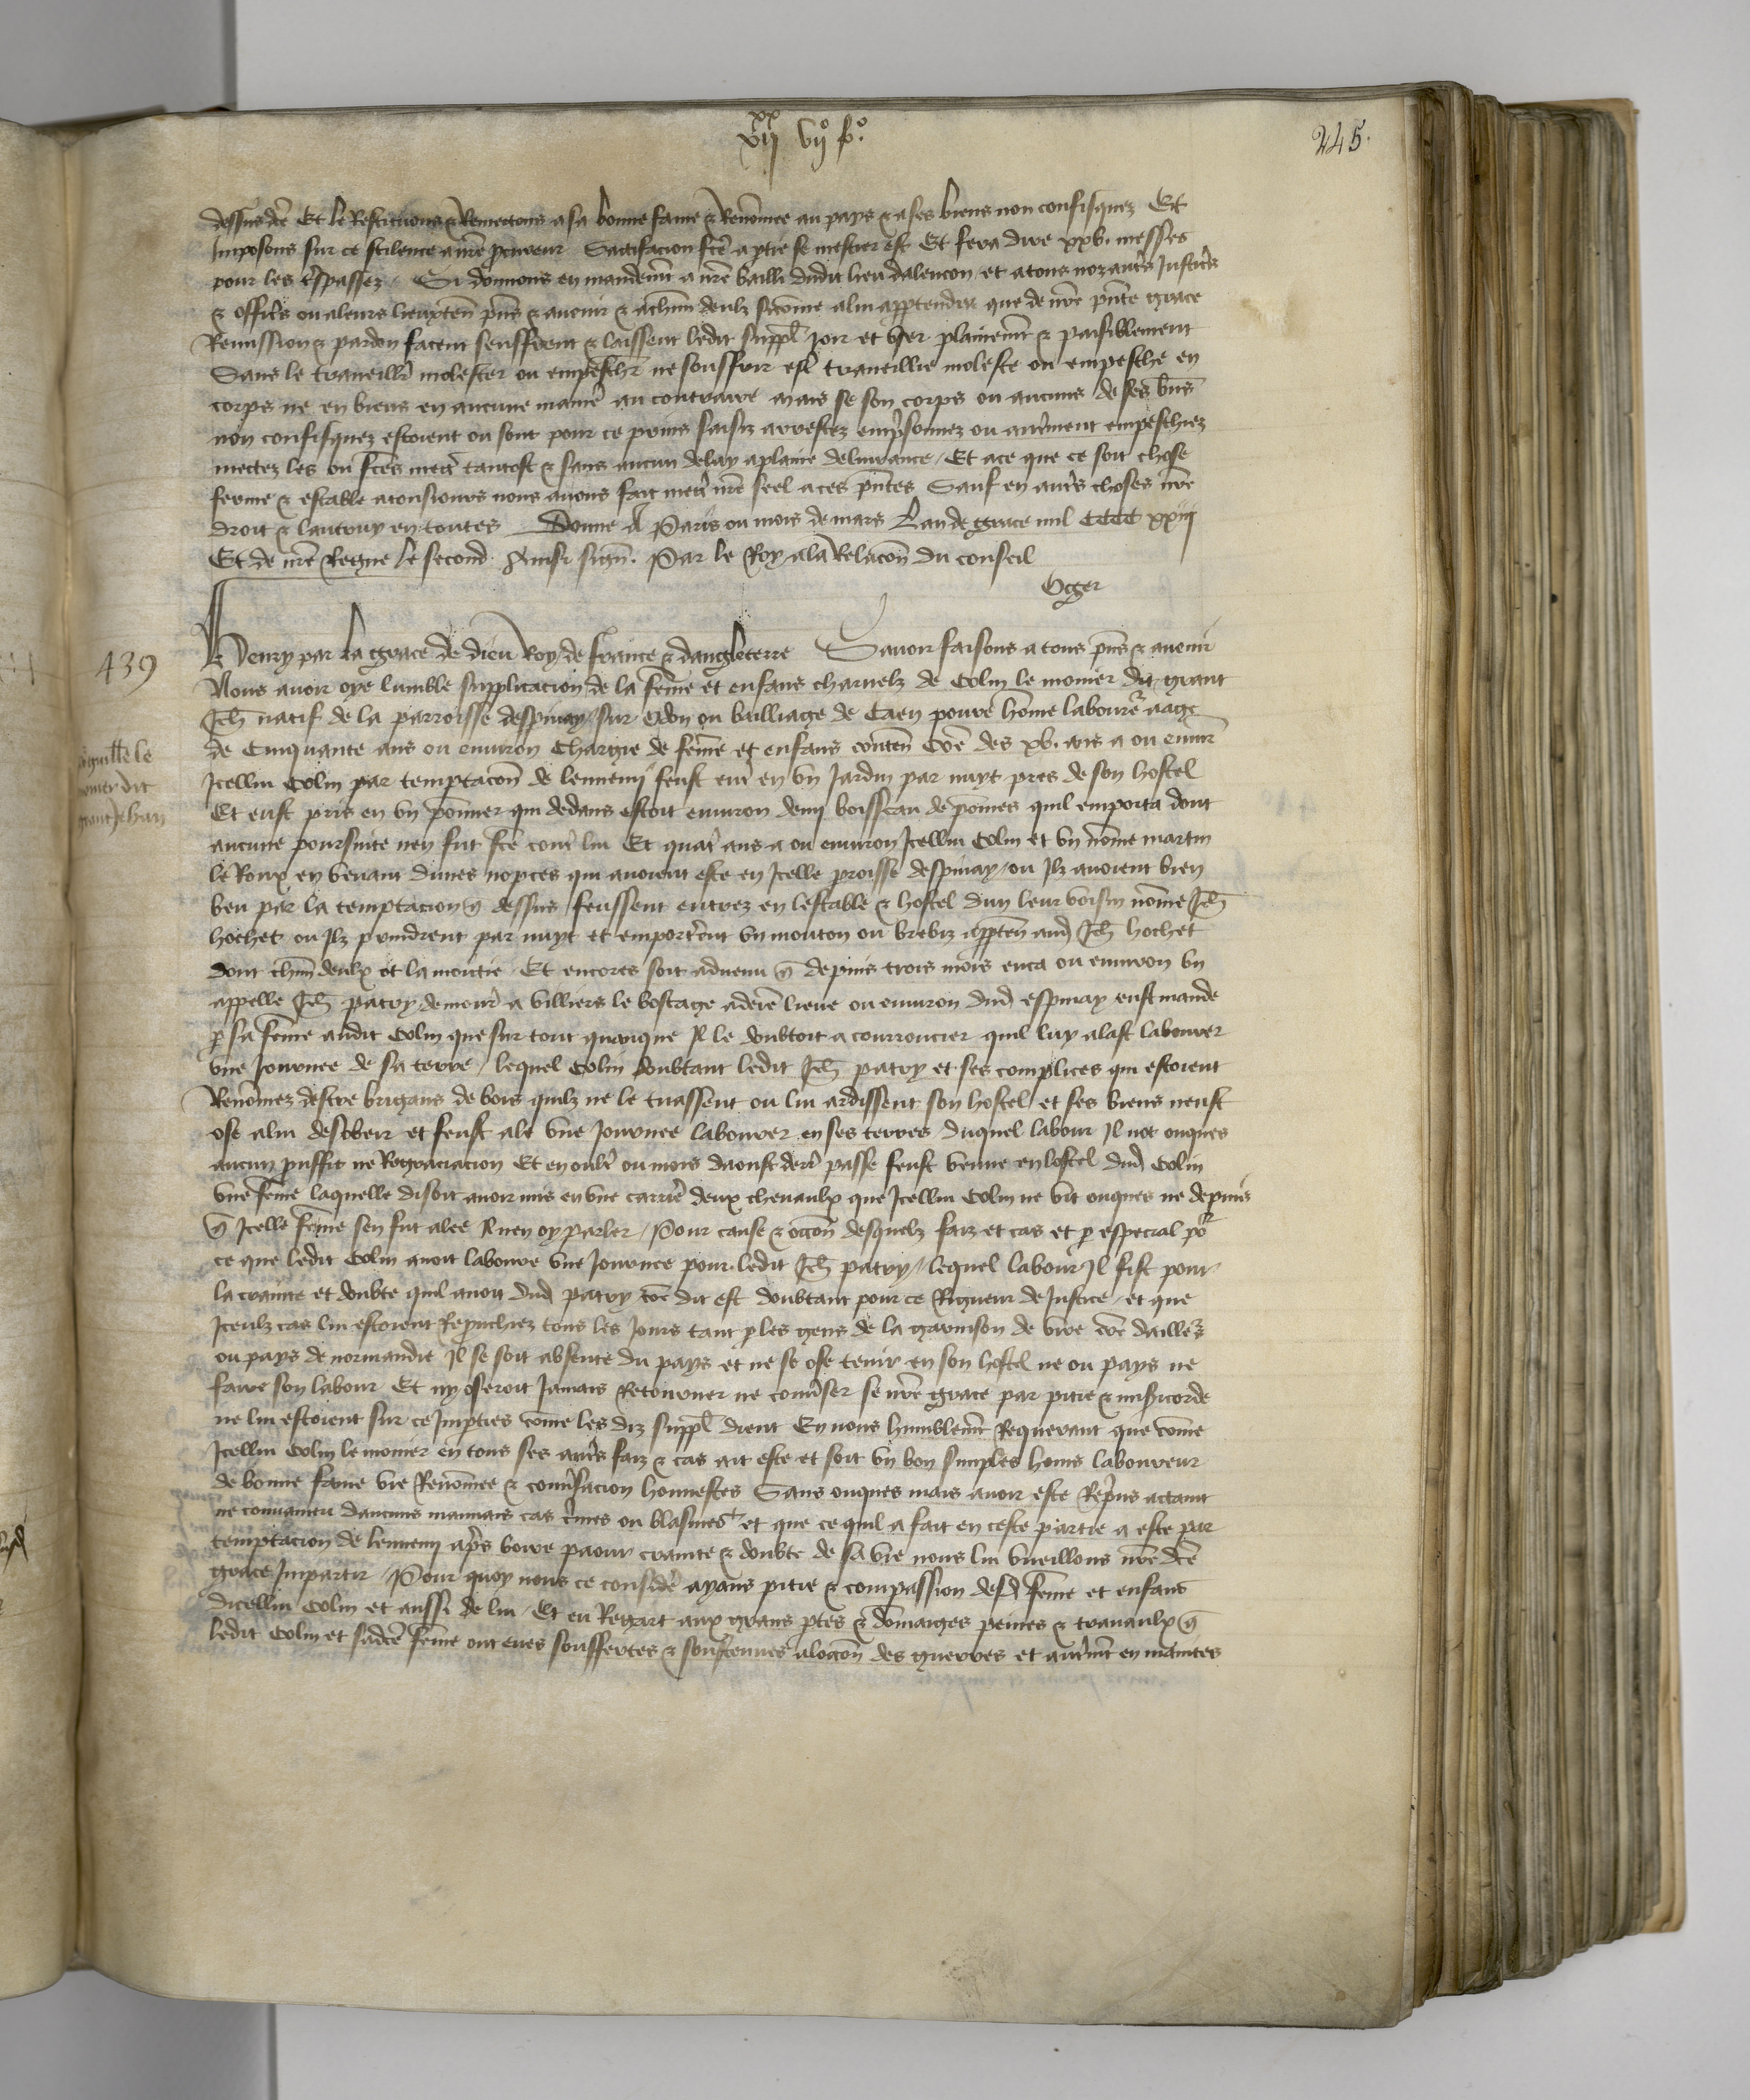 xii xx vij° f°.
245.
dessusdce Et le Restituons & Remectons a sa bonne fame & Renommee au pays & a ses biens non confisquez Et
Imposons sur ce scilence a nre procureur Satisfacion fcte a ptie se mestier est Et fera dire xxv. messes
pour les trespassez. Si donnons en mandemt a nre bailli dudit lieu dalencon et a tous noz autrs Justicrs
& officrs ou a leurs lieuxten pns & avenir & a chun deulx sicomme a lui appartendra que de nre pnte grace
Remission & pardon facent seuffrent & laissent ledit suppl Joir et user plainemt & paisiblement
Sans le traveillr molester ou empeschr ne souffrir estr traveillie moleste ou empesche en
corps ne en biens en aucune manie au contraire mais se son corps ou aucuns de ses bns
non confisquez estoient ou sont pour ce prins saisiz arrestez emprisonnez ou autrment empeschiez
mectez les ou fctes mectr tantost & sans aucun delay a plaine delivrance. Et a ce que ce soit chose
ferme & estable a tousiours nous avons fait mectr nre seel a ces pntes Sauf en autrs choses nre
droit & lautruy en toutes Donne A Paris ou mois de mars Lan de grace mil CCCC xxiij
Et de nre Regne le second. Ainsi sign. Par le Roy a la Relacon du conseil
Oger
439
Henry par la grace de dieu Roy de france & dangleterre Savoir faisons a tous pns & avenir
Nous avoir oye lumble supplicacion de la feme et enfans charnelz de Colin le monier dit grant
Jeh natif de la parroisse despinay sur Odon ou bailliage de Caen povre homme labourer aage
de Cinquante ans ou environ Chargie de feme et enfans conten Come des xv. ans a ou envir
Icellui Colin par temptacon de lennemi feust entr en un Jardin par nuyt pres de son hostel
Et eust pris en un pommier qui dedans estoit environ demi boisseau de pommes quil emporta dont
aucune poursuite nen fut fcte contr lui Et quatr ans a ou environ Icellui Colin et un nomme martin
le Roux en venant dunes nopces qui avoient este en Icelle proisse despinay ou Ilz avoient bien
beu par la temptacion q dessus feussent entrez en lestable & hostel dun leur voisin nomme Jeh
hochet ou Ilz prindrent par nuyt et emportrent un mouton ou brebiz apparten aud Jeh hochet
dont chun deulx ot la moitie. Et encores soit advenu q depuis trois mois enca ou environ un
appelle Jeh patry demour a villiers le bocage a demie lieue ou environ dud espinay eust mande
p sa feme audit Colin que sur tout quanque Il le doubtoit a courroucier quil luy alast labourer
une Journee de sa terre / lequel Colin doubtant ledit Jeh patry et ses complices qui estoient
Renommez destre brigans de bois quilz ne le tuassent ou lui ardissent son hostel et ses biens neust
ose a lui desobeir et feust ale une Journee labourer en ses terres duquel labour Il not onques
aucun prouffit ne Regraciacion Et en oultr ou mois daoust derr passe feust venue en lostel dud Colin
une feme laquelle disoit avoir mis en une carrier deux chevaulx que Icellui Colin ne vit onques ne depuis
q Icelle feme sen fut alee Il nen oy parler / Pour cause & occon desquelz faiz et cas et p especial por
ce que ledit Colin avoit laboure une Journee pour ledit Jeh patry / lequel labour Il fist pour
la crainte et doubte quil avoit dud patry come dit est doubtant pour ce Rigueur de Justice / et que
Iceulz cas lui estoient Reprouchiez tous les Jours tant p les gens de la garnison de vire come dailleurs
ou pays de normandie Il se soit absente du pays et ne se ose tenir en son hostel ne ou pays ne
faire son labour Et ny oseroit Jamais Retourner ne converser se nre grace par pitie & misericorde
ne lui estoient sur ce Imparties comme les diz suppl dient En nous humblemt Requerant que comme
Icellui Colin le monier en tous ses autrs faiz & cas ait este et soit un bon simples homs laboureur
de bonne fame vie Renommee & conversacion honnestes Sans onques mais avoir este Reprins actaint
ne convaincu daucuns mauvais cas crimes ou blasmes et que ce quil a fait en ceste partie a este par
temptacion de lennemi apres boire paour crainte & doubte de sa vie nous lui vueillons nre dce
grace Impartir / Pour quoy nous ce considere ayans pitie & compassion desd feme et enfans
dicellui Colin et aussi de lui. Et eu Regart aux grans ptes & dommaiges peines & travaulx q
ledit Colin et sadce feme ont eues souffertes & soustenues a loccon des guerres et autrmt en maintes
le
dit
Jehan